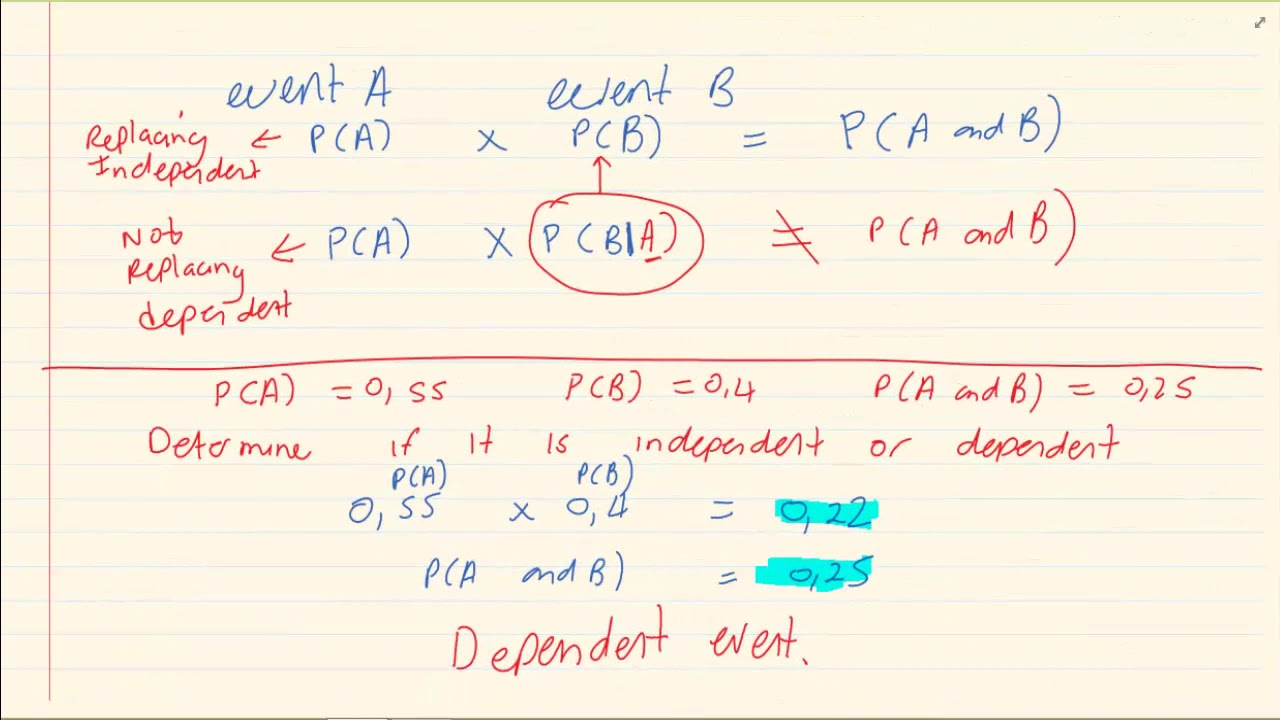 event A event B
Replacing Independent ← P(A) × P(B) = P(A and B)
Not Replacing dependent ← P(A) × P(B|A) ≠ P(A and B)
P(A) = 0,55 P(B) = 0,4 P(A and B) = 0,25
Determine if it is independent or dependent
P(A) P(B)
0,55 × 0,4 = 0,22
P(A and B) = 0,25
Dependent event.